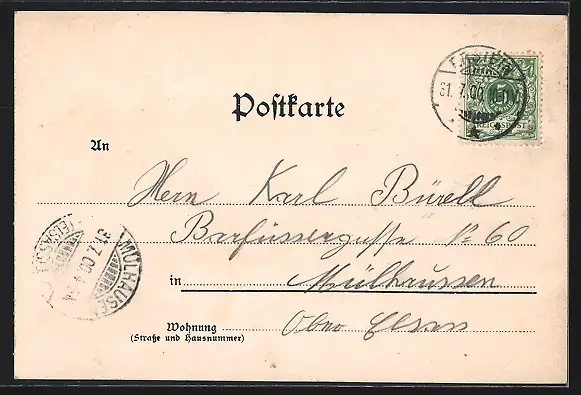 Postkarte
31.7.00
5
REICHSPOST
An
Herrn Karl Bürell
Barfüssergasse No 60
MÜLHAUSEN
(ELSASS)
31.7.00
in Mülhaussen
Wohnung
(Straße und Hausnummer)
Ober Elsass